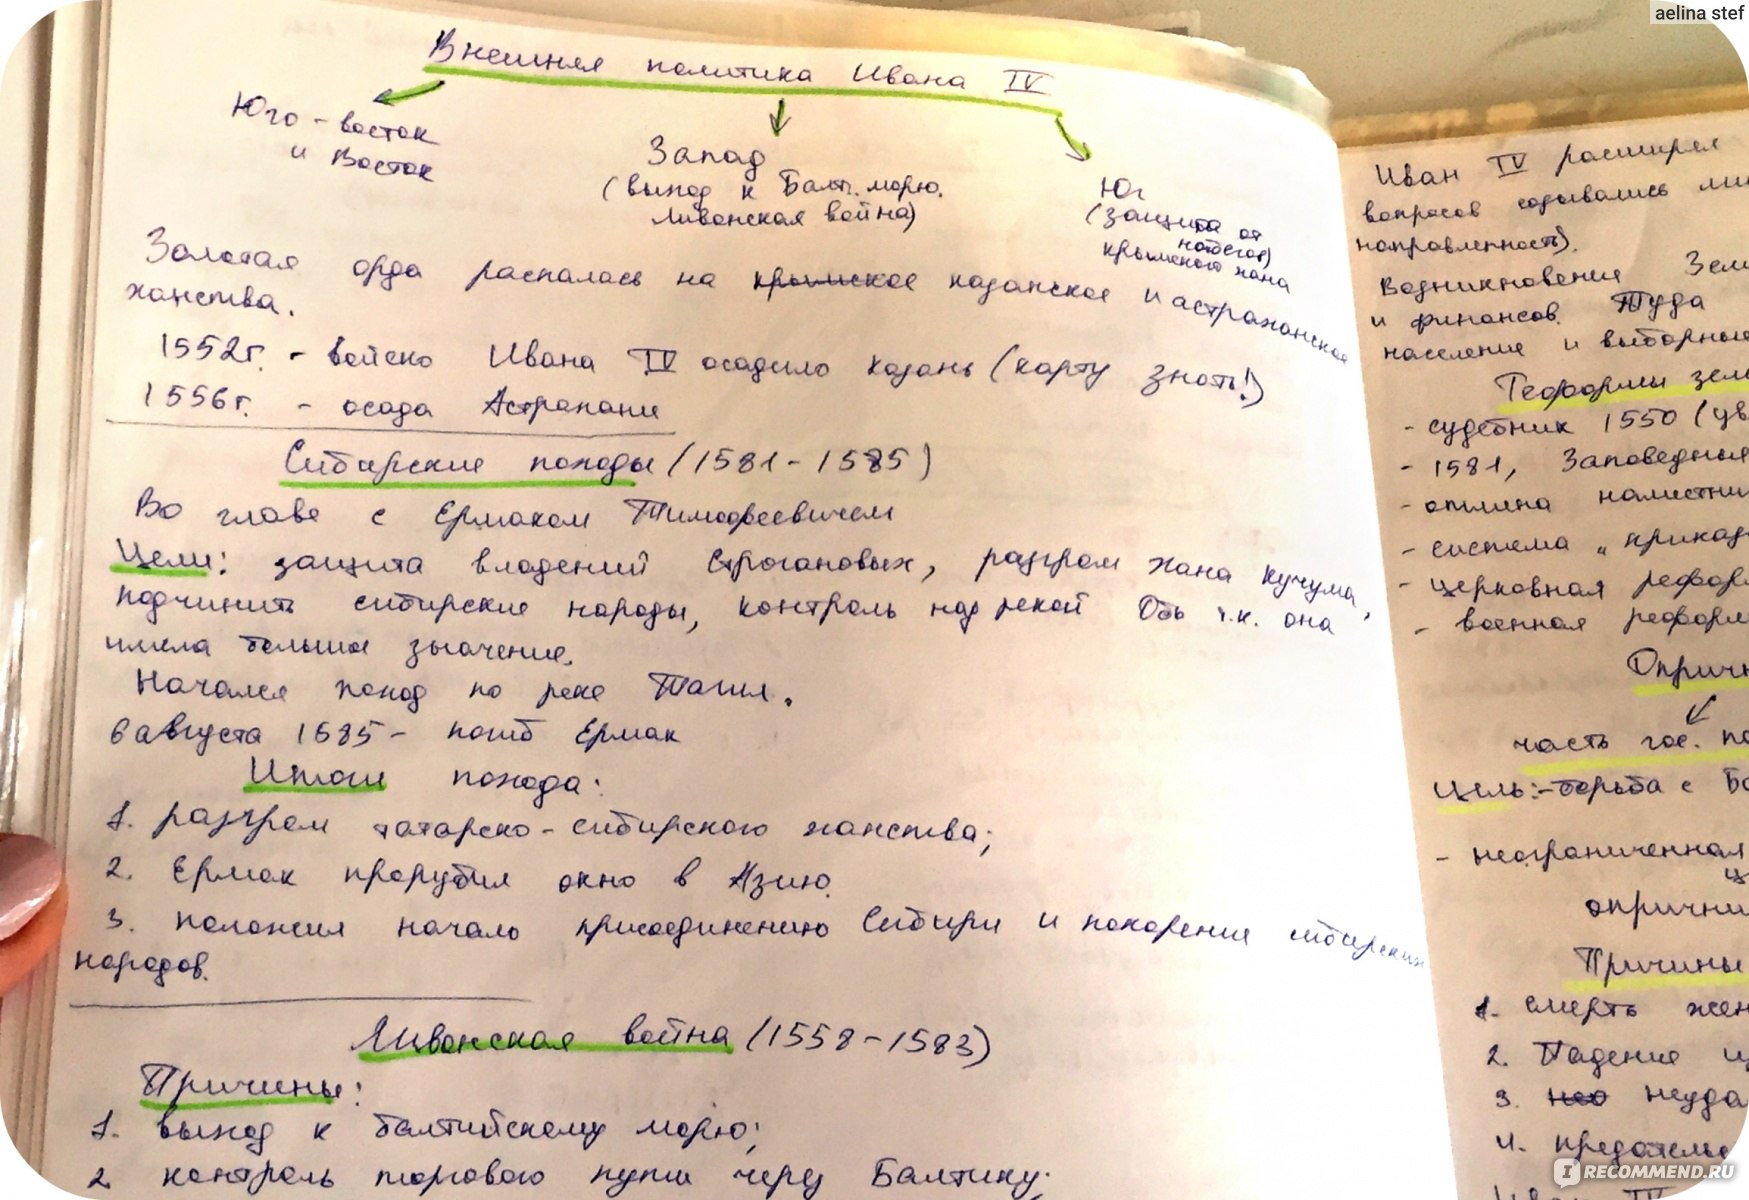 aelina stef
Внешняя политика Ивана IV
Юго-восток
и Восток
Запад
(выход к Балт. морю.
Ливонская война)
Юг
(защита от
набегов)
крымского хана
Золотая орда распалась на крымское казанское и астраханское
ханства.
1552г. - войско Ивана IV осадило казань (карту знать!)
1556г. - осада Астрахани
Сибирские походы (1581-1585)
Во главе с Ермаком Тимофеевичем
Цели: защита владений Строгановых, разгром хана Кучума,
подчинить сибирские народы, контроль над рекой Обь т.к. она
имела большое значение.
Начался поход по реке Тагил.
6 августа 1585 - погиб Ермак
Итоги похода:
1. разгром татарско-сибирского ханства;
2. Ермак прорубил окно в Азию.
3. положил начало присоединению Сибири и покорение сибирских
народов.
Ливонская война (1558-1583)
Причины:
1. выход к балтийскому морю;
2. контроль торгового пути через Балтику;
Иван IV расширял
вопросов
направленность).
Возникновение Зем
и финансов. Туда
население и выборные
Реформы зем
- судебник 1550 (ув
- 1581, Заповедные
- отмена наместни
- система "приказ
- церковная реформ
- военная реформ
Опричн
часть гос. по
Цель: - борьба с Бо
- неограниченная
опрични
Причины
1. смерть жен
2. Падение ц
3. нео неуда
4. предатель
Иван IV
IRECOMMEND.RU